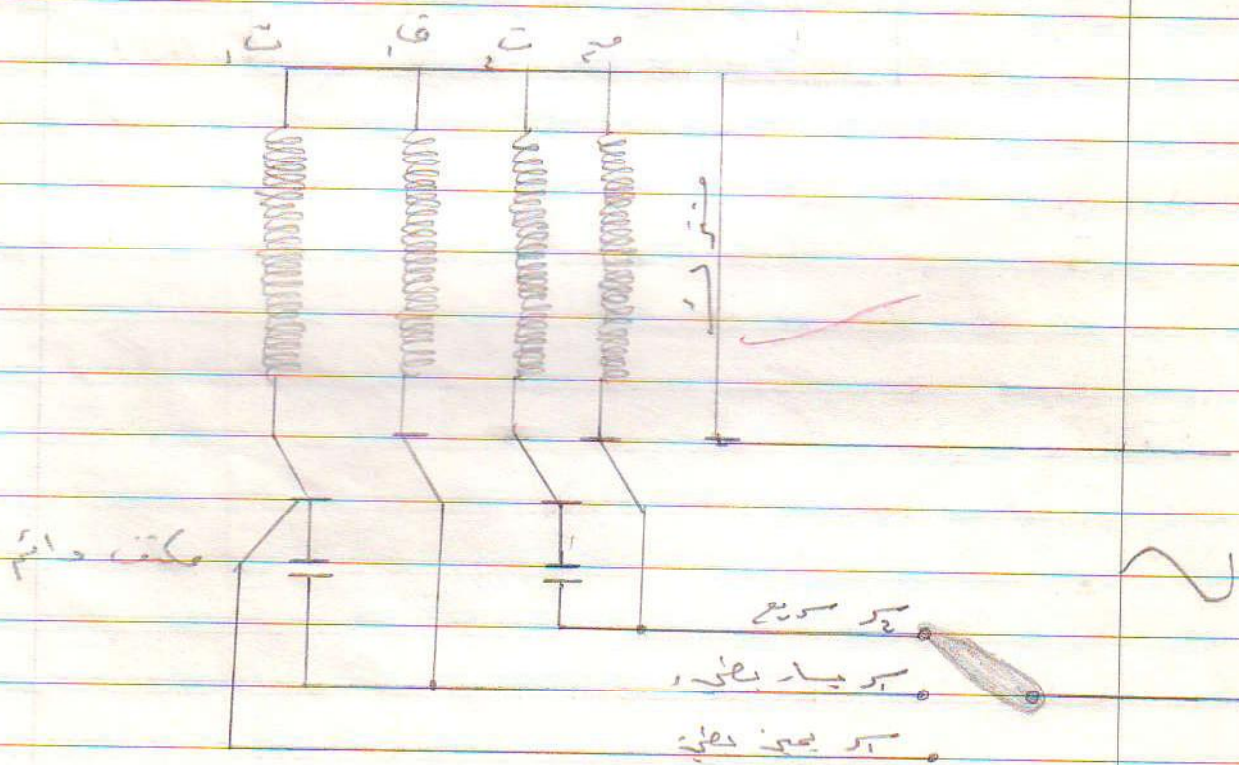 ت١
ق١
ت٢
ق٢
مشترك
مكثف دائم
س٢ سريع
س١ يسار بطئ
س١ يمين بطئ